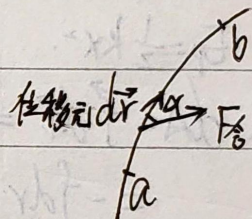 b
位移元 d\vec{r} α F合
a